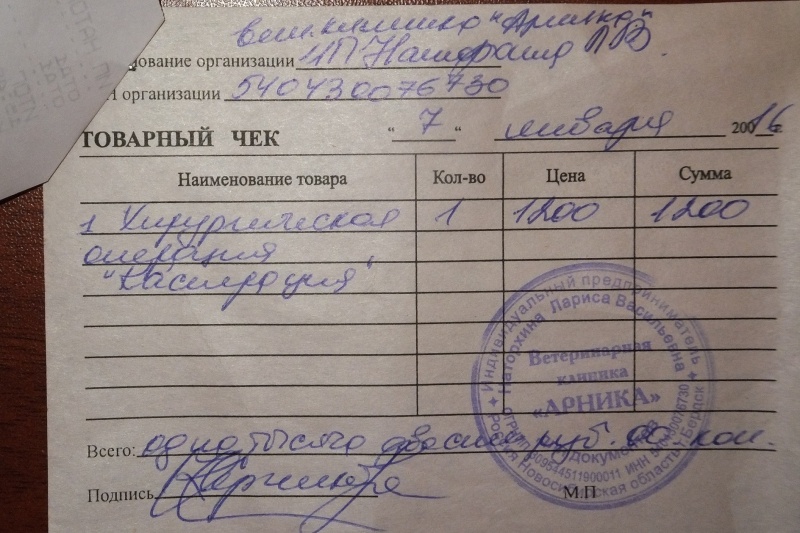 вет. клиника "Арника"
ование организации ИП Нагорхина ЛВ
Н организации 540430076730
ТОВАРНЫЙ ЧЕК "7" января 2016
Наименование товара Кол-во Цена Сумма
1 Хирургическая 1 1200 1200
операция
"Кастрация"
Индивидуальный предприниматель
Нагорхина Лариса Васильевна
Ветеринарная
клиника
«АРНИКА»
Россия Новосибирская область г.Бердск
Всего: одна тысяча двести руб. 00 коп.
Подпись
М.П